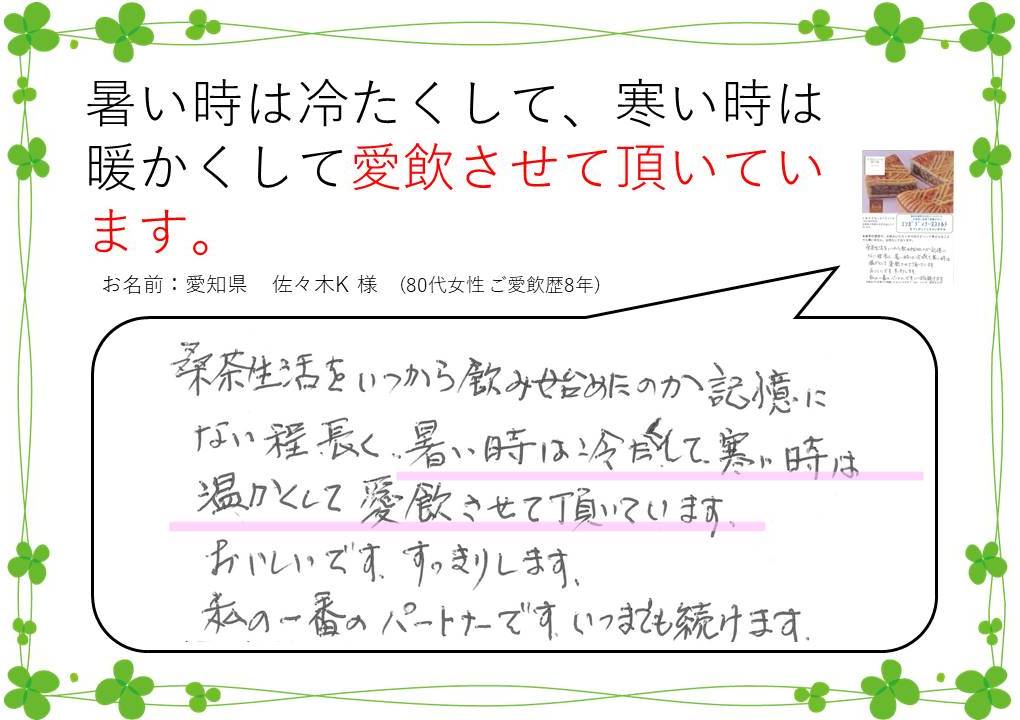 暑い時は冷たくして、寒い時は
暖かくして愛飲させて頂いてい
ます。
お名前：愛知県　佐々木K 様　(80代女性 ご愛飲歴8年)
桑茶生活をいつから飲み始めたのか記憶に
ない程長く、暑い時は冷たくして、寒い時は
温かくして愛飲させて頂いています。
おいしいです、すっきりします、
私の一番のパートナーです、いつまでも続けます、